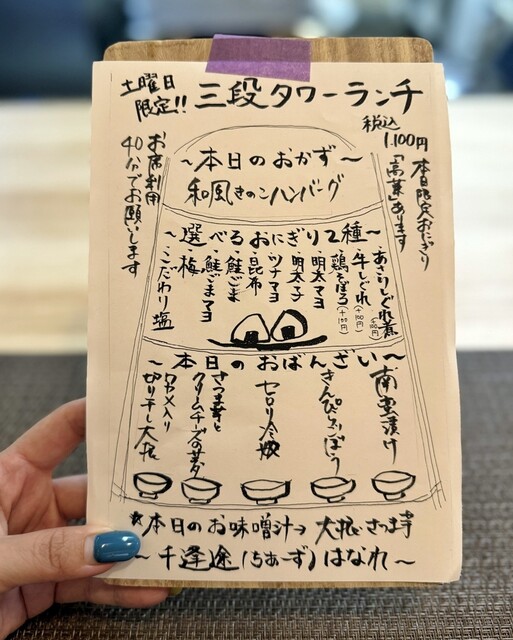 土曜日
限定!!
三段タワーランチ
税込
1,100円
本日限定おにぎり
「高菜」あります
お席利用
40分でお願いします
～本日のおかず～
和風きのこハンバーグ
～選べるおにぎり2種～
・あさりしぐれ煮(+100円)
・牛しぐれ(+100円)
・鶏そぼろ(+100円)
・明太マヨ
・明太子
・ツナマヨ
・昆布
・鮭ごま
・鮭ごまマヨ
・梅
・こだわり塩
～本日のおばんざい～
南蛮漬け
きんぴらごぼう
セロリ
さつま芋と
クリームチーズの
ワカメ入り
切り干し大根
*本日のお味噌汁→大根さつま芋
～千逢途(ちあーず)はなれ～